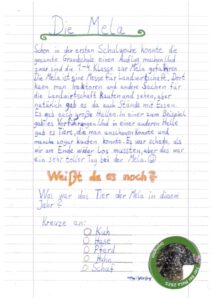 Die Mela
Schon in der ersten Schulwoche konnte die
gesamte Grundschule einen Ausflug machen. Und
zwar sind die 1-4 Klasse zur Mela gefahren.
Die Mela ist eine Messe für Landwirtschaft. Dort
kann man Traktoren und andere Sachen für
die Landwirtschaft kaufen und sehen, aber
natürlich gab es da auch Stände mit Essen.
Es gab auch große Hallen. In einer zum Beispiel
gab es und in einer anderen Halle
gab es Tiere, die man anschauen konnte und
manche sogar kaufen konnte. Es war schade, als
wir am Ende wieder los mussten, aber das war
ein sehr toller Tag bei der Mela.
Weißt du es noch?
Was war das Tier der Mela in diesem
Jahr?
Kreuze an:
O Kuh
O Hase
O Pferd
O Huhn
O Schaf